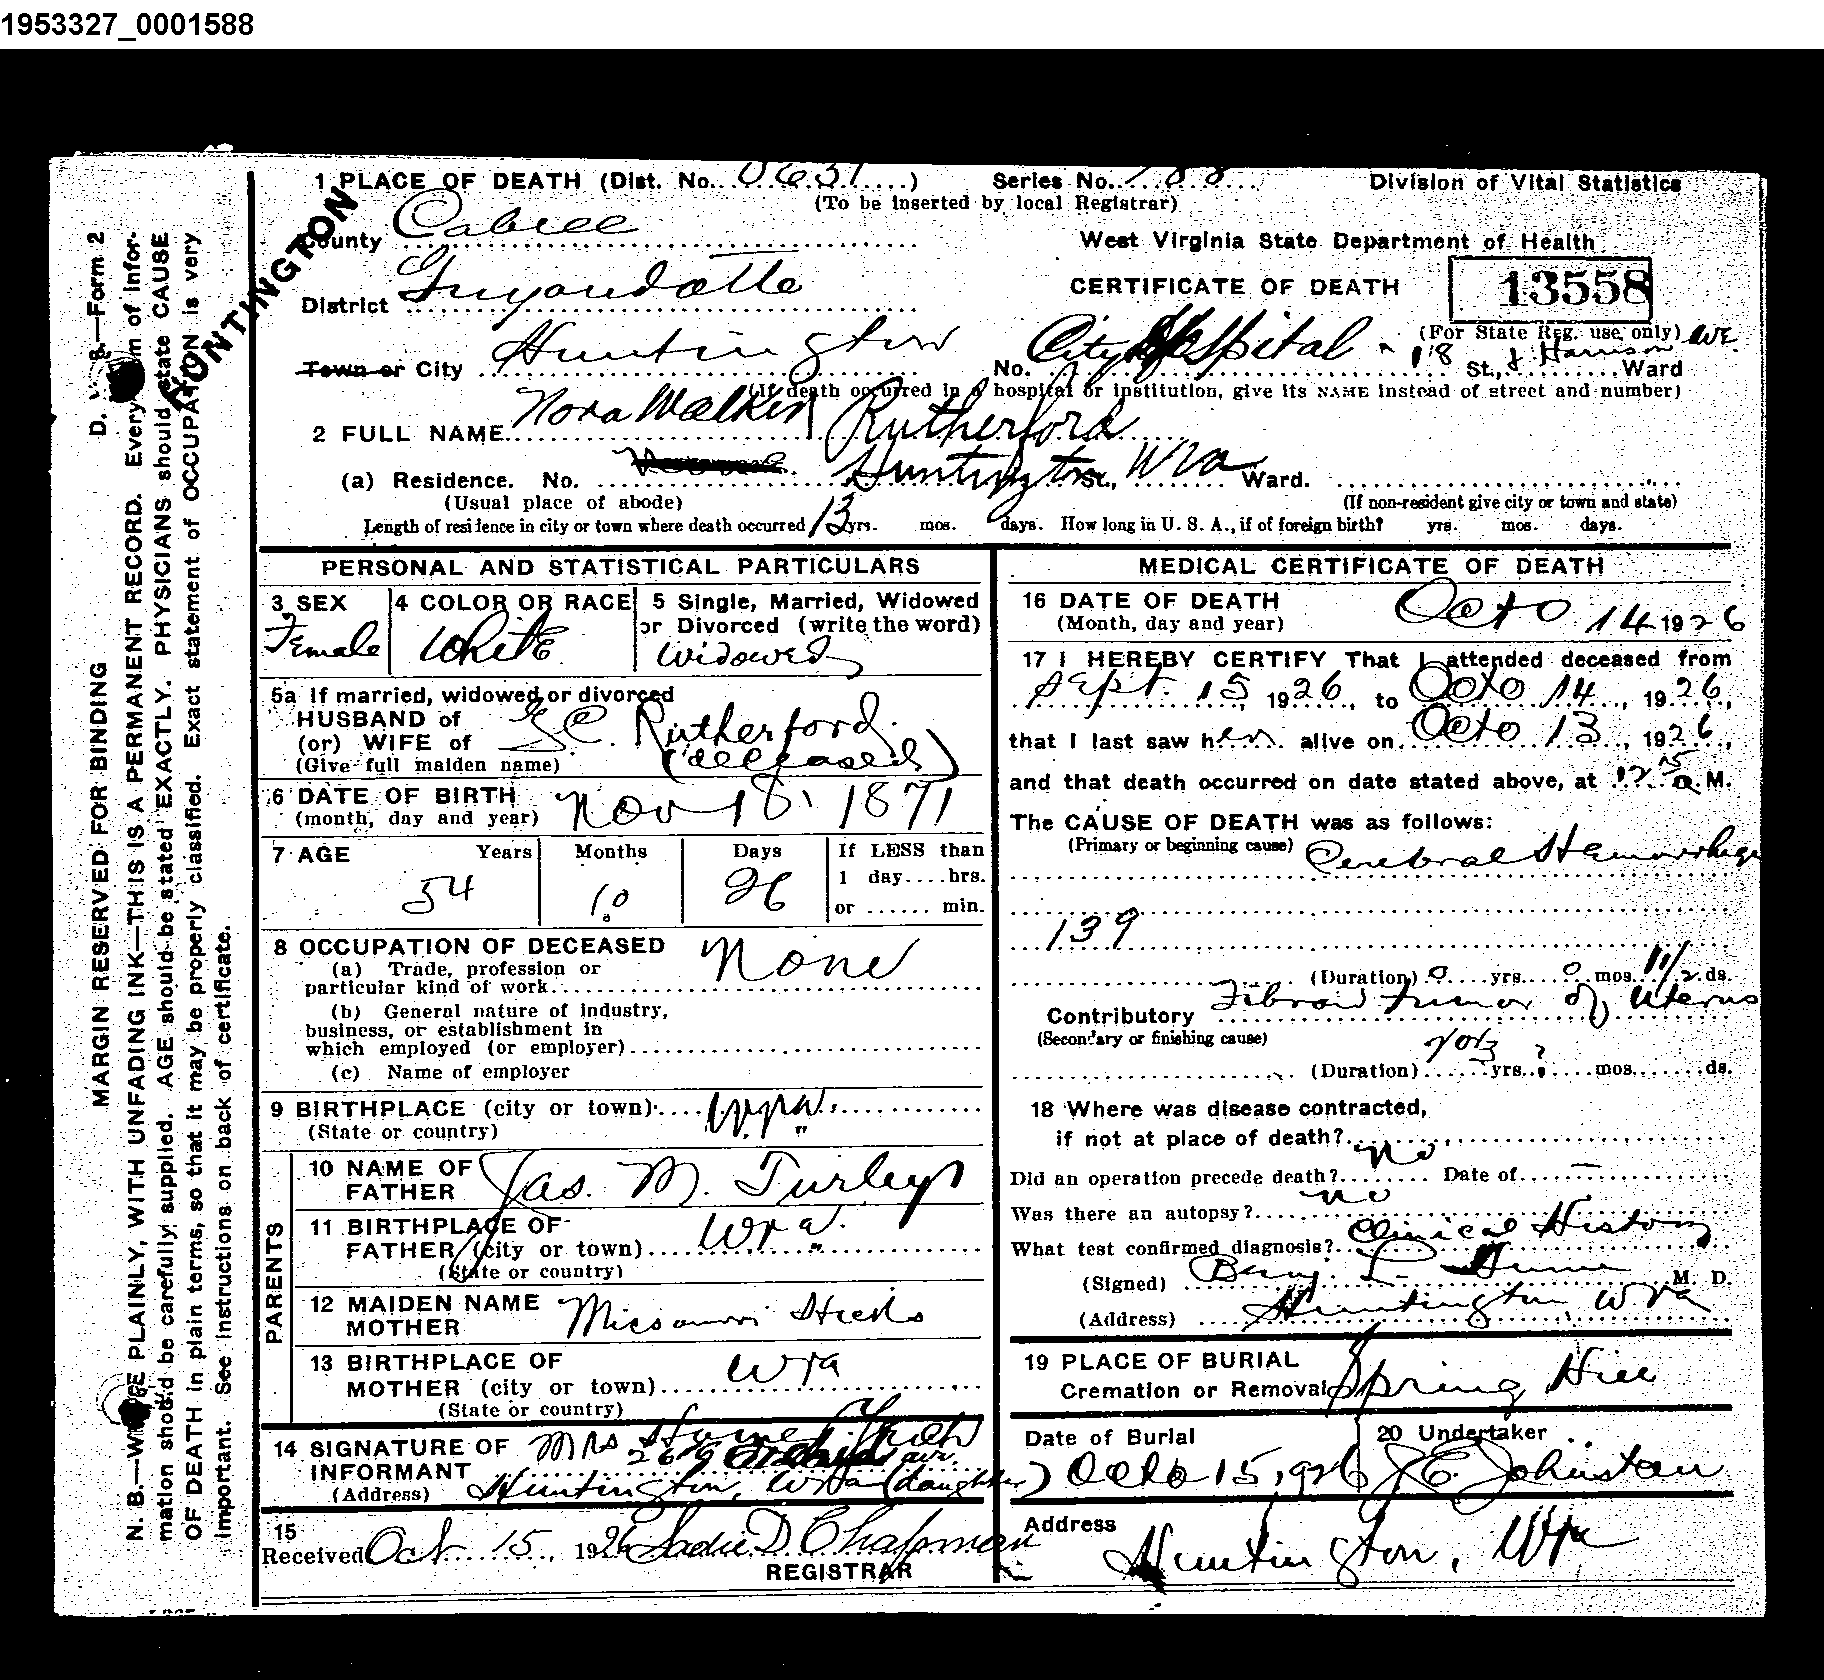 1953327_0001588
1 PLACE OF DEATH (Dist. No. 0631) Series No. 188 Division of Vital Statistics
(To be inserted by local Registrar)
HUNTINGTON
County Cabell West Virginia State Department of Health
District Guyandotte CERTIFICATE OF DEATH 13558
(For State Reg. use only)
Town or City Huntington No. City Hospital - 18 St., & Harrison Ave Ward
(If death occurred in a hospital or institution, give its NAME instead of street and number)
2 FULL NAME Nora Walker Rutherford
(a) Residence. No. Huntington St., W Va Ward.
(Usual place of abode) (If non-resident give city or town and state)
Length of residence in city or town where death occurred 13 yrs. mos. days. How long in U. S. A., if of foreign birth? yrs. mos. days.
PERSONAL AND STATISTICAL PARTICULARS
3 SEX 4 COLOR OR RACE 5 Single, Married, Widowed
or Divorced (write the word)
Female White Widowed
5a If married, widowed or divorced
HUSBAND of
(or) WIFE of Rutherford
(Give full maiden name) (deceased)
6 DATE OF BIRTH
(month, day and year) Nov 18, 1871
7 AGE Years Months Days If LESS than
1 day....hrs.
54 10 26
or ...... min.
8 OCCUPATION OF DECEASED None
(a) Trade, profession or
particular kind of work
(b) General nature of industry,
business, or establishment in
which employed (or employer)
(c) Name of employer
9 BIRTHPLACE (city or town) W.Va.
(State or country) "
PARENTS
10 NAME OF
FATHER Jas. M. Turley
11 BIRTHPLACE OF
FATHER (city or town) W Va.
(State or country) "
12 MAIDEN NAME
MOTHER Missouri Hicks
13 BIRTHPLACE OF
MOTHER (city or town) W Va
(State or country)
14 SIGNATURE OF Mrs
INFORMANT ave.
(Address) Huntington, W Va (daughter)
15
Received Oct 15, 1926 Sadie D Chapman
REGISTRAR
MEDICAL CERTIFICATE OF DEATH
16 DATE OF DEATH
(Month, day and year) Octo 14 1926
17 I HEREBY CERTIFY That I attended deceased from
Sept. 15, 1926, to Octo 14, 1926,
that I last saw her alive on Octo 13, 1926,
and that death occurred on date stated above, at 12 15 a M.
The CAUSE OF DEATH was as follows:
(Primary or beginning cause) Cerebral Hemorrhage
139
(Duration) 0 yrs. 0 mos. 1 1/2 ds.
Contributory Fibroid Tumor of Uterus
(Secondary or finishing cause)
(Duration) yrs. ? mos. ds.
18 Where was disease contracted,
if not at place of death?
Did an operation precede death? no Date of —
Was there an autopsy? no
What test confirmed diagnosis? Clinical History
(Signed) Benj. L. Hume M. D.
(Address) Huntington, W Va
19 PLACE OF BURIAL
Cremation or Removal Spring Hill
Date of Burial 20 Undertaker
Octo 15, 1926 J C. Johnston
Address
Huntington, W Va
MARGIN RESERVED FOR BINDING D. V. S.—Form 2
N. B.—WRITE PLAINLY, WITH UNFADING INK—THIS IS A PERMANENT RECORD. Every item of infor-
mation should be carefully supplied. AGE should be stated EXACTLY. PHYSICIANS should state CAUSE
OF DEATH in plain terms, so that it may be properly classified. Exact statement of OCCUPATION is very
important. See instructions on back of certificate.